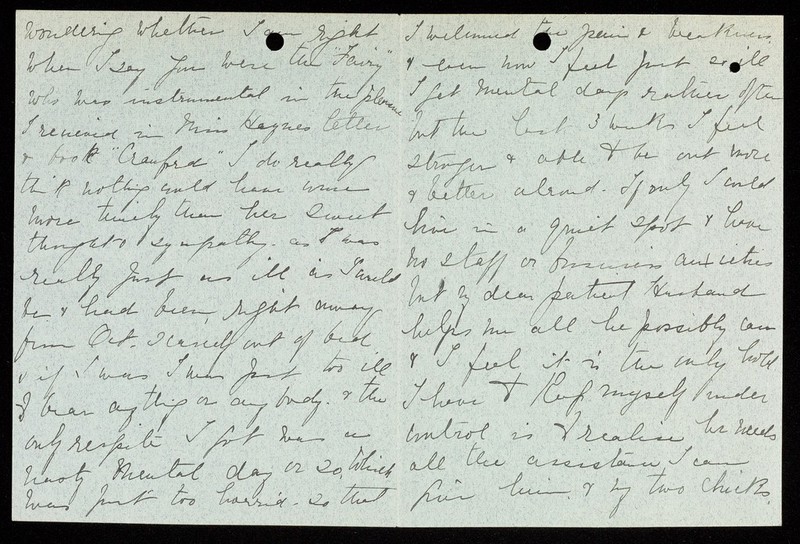 wondering whether I am right
when I say you were the "Fairy"
who was instrumental in the pleasure
I received in Miss Haynes letter
& book "Cranford" I do really
think nothing could have come
more timely than her sweet
thoughts sympathy. as I was
really just as ill as I could
be & had been, right away
from Oct. scarcely out of bed
& if I was I was just too ill
to bear anything or anybody. & the
only respite I got was a
nasty mental day or so, which
was just too horrid. so that
I welcomed the pain & weakness
& even now I feel just so ill
I get mental days rather often
but the last 3 weeks I feel
stronger & able to be out more
& better abroad. If only I could
live in a quiet spot & have
no staff or business anxieties
but my dear patient Husband
helps me all he possibly can
& I feel it is the only hold
I have to keep myself under
control is to realise he needs
all the assistance I can
give him. & my two chicks.